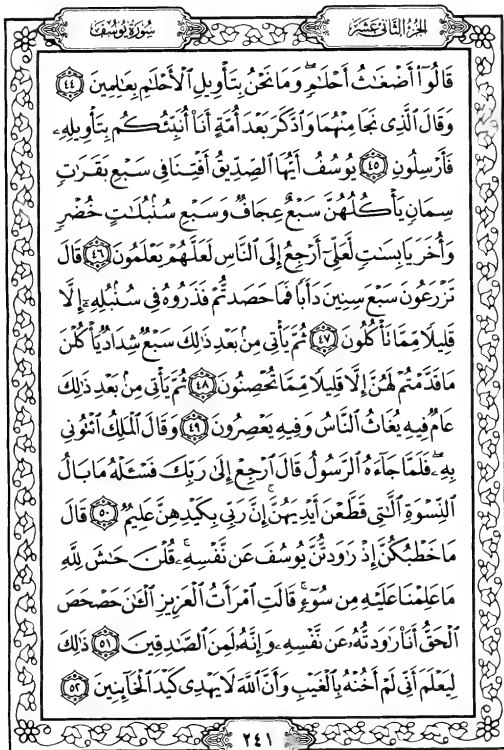 سُورَةُ يُوسُفَ
الجُزْءُ الثَّانِي عَشَرَ
قَالُوٓا۟ أَضْغَٰثُ أَحْلَٰمٍ ۖ وَمَا نَحْنُ بِتَأْوِيلِ ٱلْأَحْلَٰمِ بِعَٰلِمِينَ ٤٤
وَقَالَ ٱلَّذِى نَجَا مِنْهُمَا وَٱدَّكَرَ بَعْدَ أُمَّةٍ أَنَا۠ أُنَبِّئُكُم بِتَأْوِيلِهِۦ
فَأَرْسِلُونِ ٤٥ يُوسُفُ أَيُّهَا ٱلصِّدِّيقُ أَفْتِنَا فِى سَبْعِ بَقَرَٰتٍ
سِمَانٍ يَأْكُلُهُنَّ سَبْعٌ عِجَافٌ وَسَبْعِ سُنۢبُلَٰتٍ خُضْرٍ
وَأُخَرَ يَابِسَٰتٍ لَّعَلِّىٓ أَرْجِعُ إِلَى ٱلنَّاسِ لَعَلَّهُمْ يَعْلَمُونَ ٤٦ قَالَ
تَزْرَعُونَ سَبْعَ سِنِينَ دَأَبًا فَمَا حَصَدتُّمْ فَذَرُوهُ فِى سُنۢبُلِهِۦٓ إِلَّا
قَلِيلًا مِّمَّا تَأْكُلُونَ ٤٧ ثُمَّ يَأْتِى مِنۢ بَعْدِ ذَٰلِكَ سَبْعٌ شِدَادٌ يَأْكُلْنَ
مَا قَدَّمْتُمْ لَهُنَّ إِلَّا قَلِيلًا مِّمَّا تُحْصِنُونَ ٤٨ ثُمَّ يَأْتِى مِنۢ بَعْدِ ذَٰلِكَ
عَامٌ فِيهِ يُغَاثُ ٱلنَّاسُ وَفِيهِ يَعْصِرُونَ ٤٩ وَقَالَ ٱلْمَلِكُ ٱئْتُونِى
بِهِۦ ۖ فَلَمَّا جَآءَهُ ٱلرَّسُولُ قَالَ ٱرْجِعْ إِلَىٰ رَبِّكَ فَسْـَٔلْهُ مَا بَالُ
ٱلنِّسْوَةِ ٱلَّٰتِى قَطَّعْنَ أَيْدِيَهُنَّ ۚ إِنَّ رَبِّى بِكَيْدِهِنَّ عَلِيمٌ ٥٠ قَالَ
مَا خَطْبُكُنَّ إِذْ رَٰوَدتُّنَّ يُوسُفَ عَن نَّفْسِهِۦ ۚ قُلْنَ حَٰشَ لِلَّهِ
مَا عَلِمْنَا عَلَيْهِ مِن سُوٓءٍ ۚ قَالَتِ ٱمْرَأَتُ ٱلْعَزِيزِ ٱلْـَٰٔنَ حَصْحَصَ
ٱلْحَقُّ أَنَا۠ رَٰوَدتُّهُۥ عَن نَّفْسِهِۦ وَإِنَّهُۥ لَمِنَ ٱلصَّٰدِقِينَ ٥١ ذَٰلِكَ
لِيَعْلَمَ أَنِّى لَمْ أَخُنْهُ بِٱلْغَيْبِ وَأَنَّ ٱللَّهَ لَا يَهْدِى كَيْدَ ٱلْخَآئِنِينَ ٥٢
٢٤١